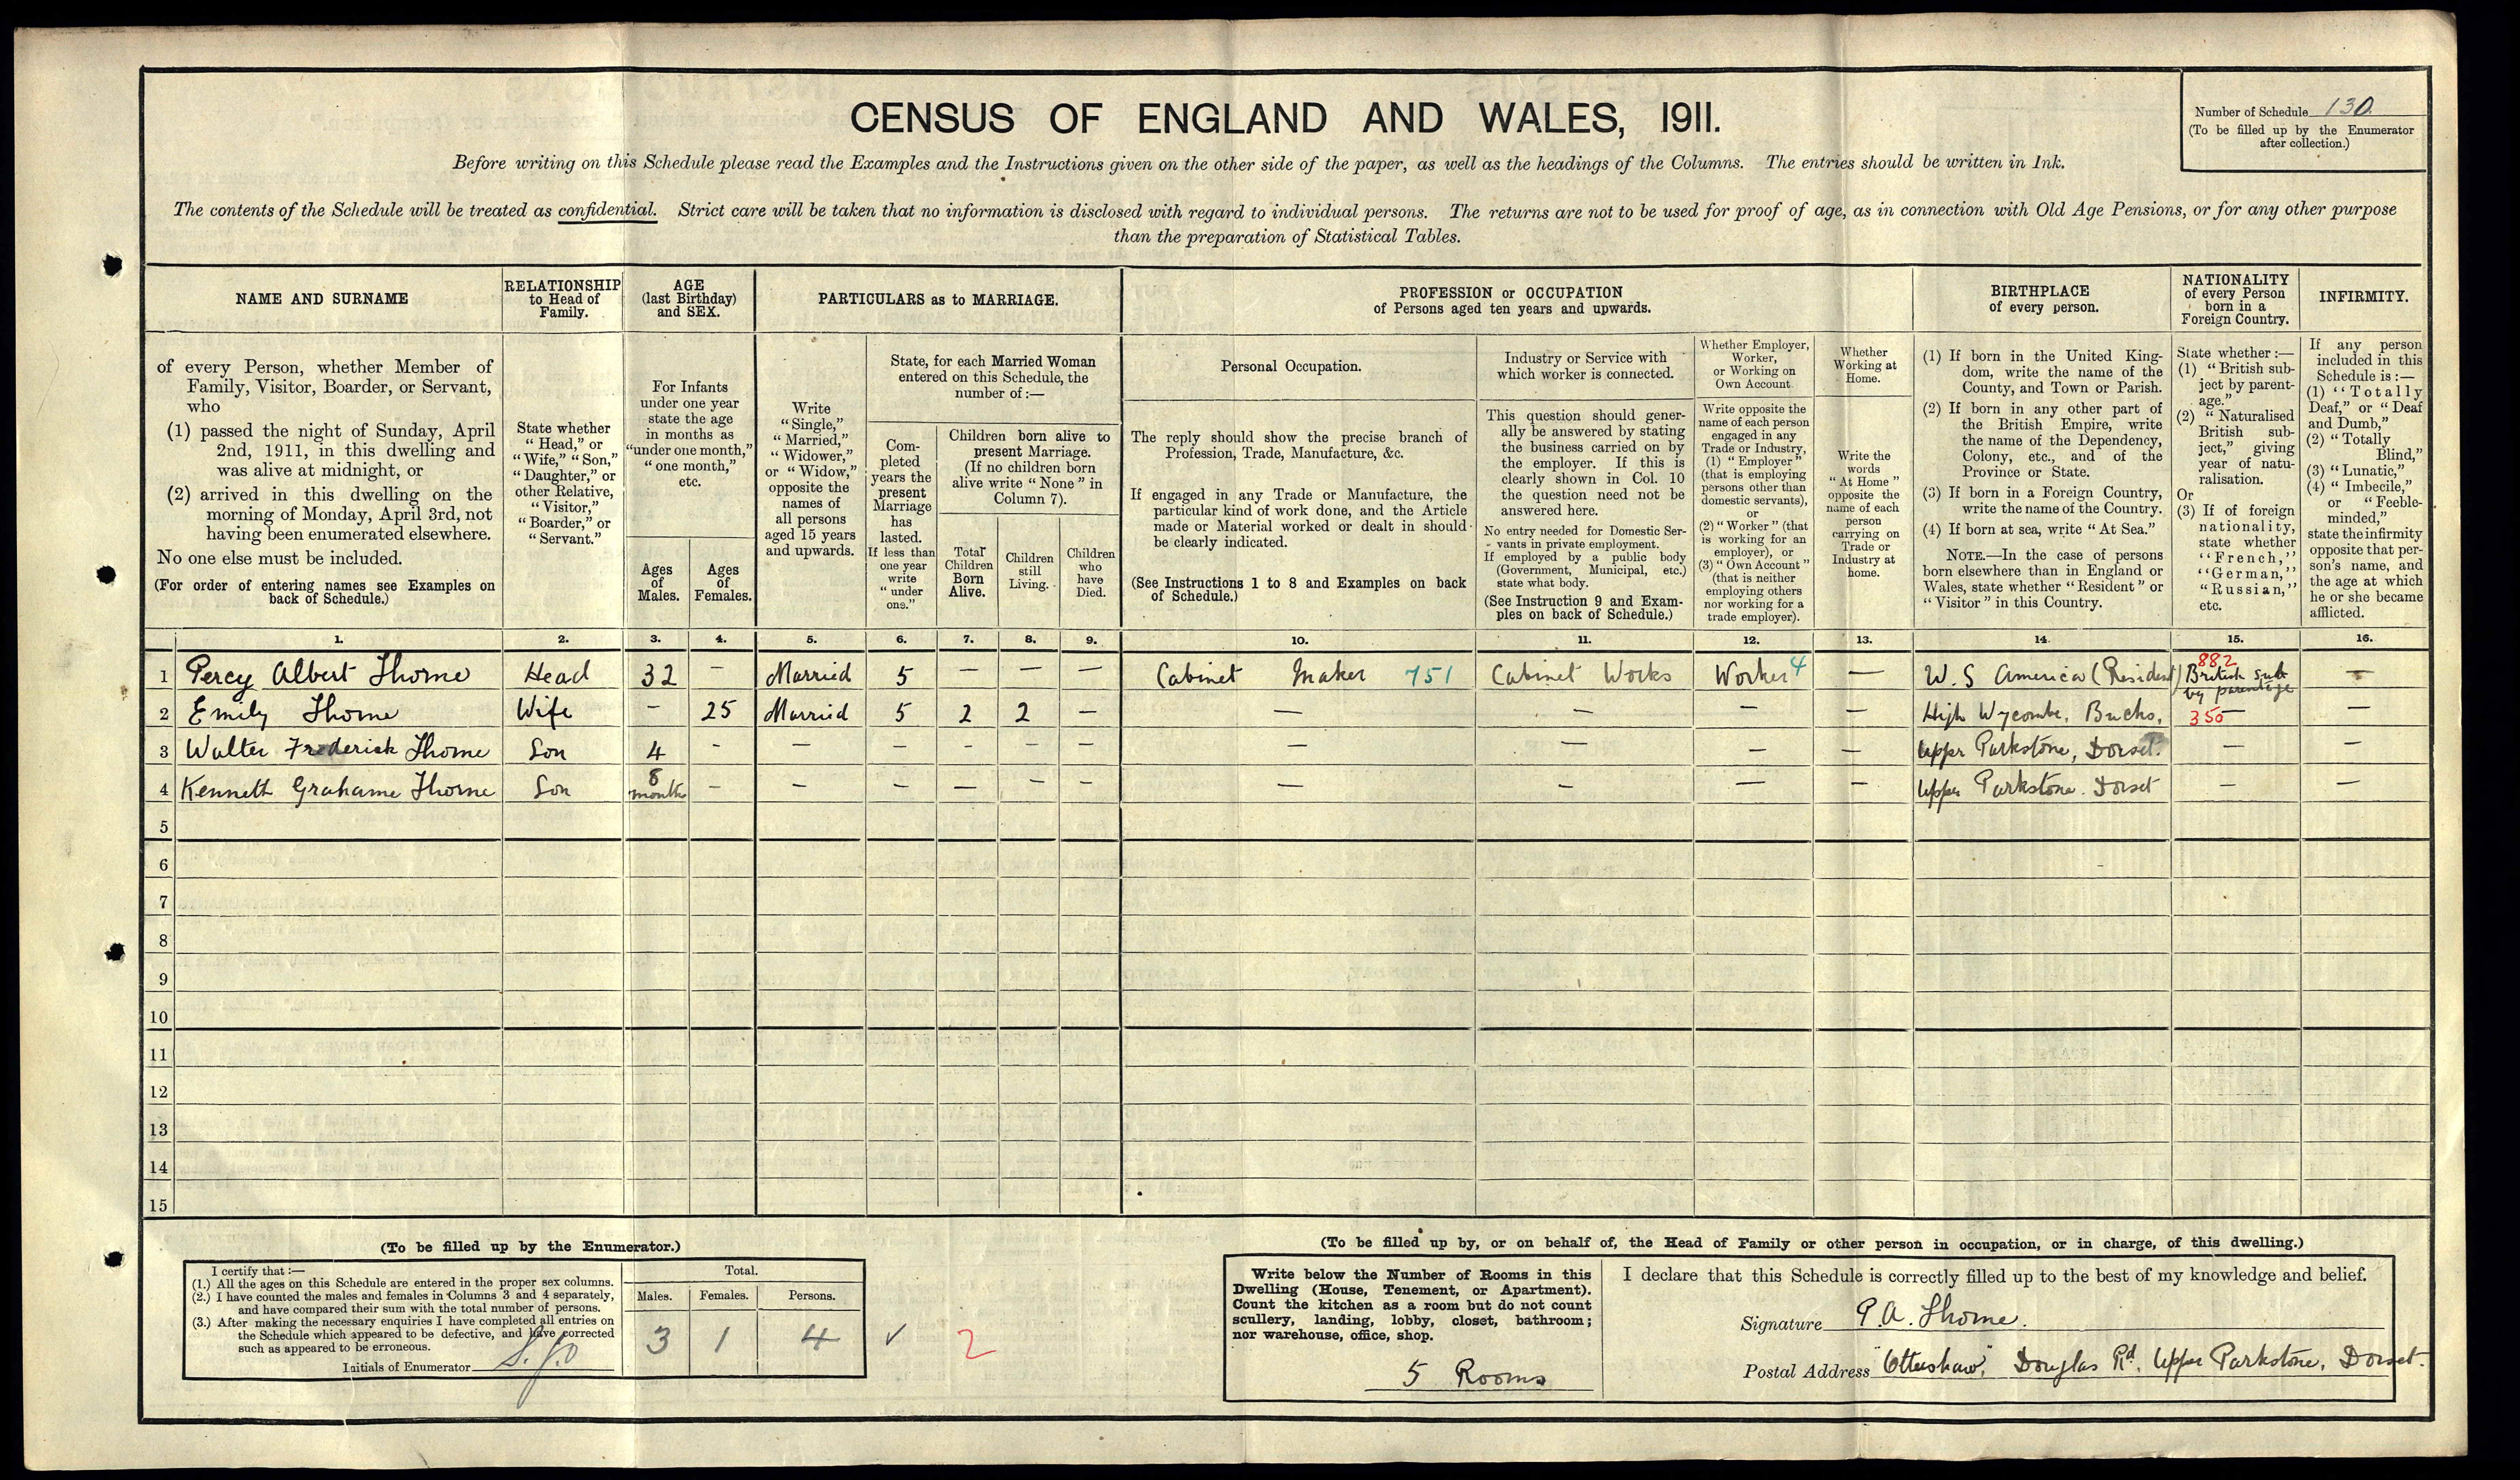 CENSUS OF ENGLAND AND WALES, 1911.
Number of Schedule 130.
(To be filled up by the Enumerator
after collection.)
Before writing on this Schedule please read the Examples and the Instructions given on the other side of the paper, as well as the headings of the Columns. The entries should be written in Ink.
The contents of the Schedule will be treated as confidential. Strict care will be taken that no information is disclosed with regard to individual persons. The returns are not to be used for proof of age, as in connection with Old Age Pensions, or for any other purpose
than the preparation of Statistical Tables.
NAME AND SURNAME
RELATIONSHIP
to Head of
Family.
AGE
(last Birthday)
and SEX.
PARTICULARS as to MARRIAGE.
PROFESSION or OCCUPATION
of Persons aged ten years and upwards.
BIRTHPLACE
of every person.
NATIONALITY
of every Person
born in a
Foreign Country.
INFIRMITY.
of every Person, whether Member of
Family, Visitor, Boarder, or Servant,
who
(1) passed the night of Sunday, April
2nd, 1911, in this dwelling and
was alive at midnight, or
(2) arrived in this dwelling on the
morning of Monday, April 3rd, not
having been enumerated elsewhere.
No one else must be included.
(For order of entering names see Examples on
back of Schedule.)
State whether
"Head," or
"Wife," "Son,"
"Daughter," or
other Relative,
"Visitor,"
"Boarder," or
"Servant."
For Infants
under one year
state the age
in months as
"under one month,"
"one month,"
etc.
Ages
of
Males.
Ages
of
Females.
Write
"Single,"
"Married,"
"Widower,"
or "Widow,"
opposite the
names of
all persons
aged 15 years
and upwards.
State, for each Married Woman
entered on this Schedule, the
number of:—
Com-
pleted
years the
present
Marriage
has
lasted.
If less than
one year
write
"under
one."
Children born alive to
present Marriage.
(If no children born
alive write "None" in
Column 7).
Total
Children
Born
Alive.
Children
still
Living.
Children
who
have
Died.
Personal Occupation.
The reply should show the precise branch of
Profession, Trade, Manufacture, &c.
If engaged in any Trade or Manufacture, the
particular kind of work done, and the Article
made or Material worked or dealt in should
be clearly indicated.
(See Instructions 1 to 8 and Examples on back
of Schedule.)
Industry or Service with
which worker is connected.
This question should gener-
ally be answered by stating
the business carried on by
the employer. If this is
clearly shown in Col. 10
the question need not be
answered here.
No entry needed for Domestic Ser-
vants in private employment.
If employed by a public body
(Government, Municipal, etc.)
state what body.
(See Instruction 9 and Exam-
ples on back of Schedule.)
Whether Employer,
Worker,
or Working on
Own Account
Write opposite the
name of each person
engaged in any
Trade or Industry,
(1) "Employer"
(that is employing
persons other than
domestic servants),
or
(2) "Worker" (that
is working for an
employer), or
(3) "Own Account"
(that is neither
employing others
nor working for a
trade employer).
Whether
Working at
Home.
Write the
words
"At Home"
opposite the
name of each
person
carrying on
Trade or
Industry at
home.
(1) If born in the United King-
dom, write the name of the
County, and Town or Parish.
(2) If born in any other part of
the British Empire, write
the name of the Dependency,
Colony, etc., and of the
Province or State.
(3) If born in a Foreign Country,
write the name of the Country.
(4) If born at sea, write "At Sea."
NOTE.—In the case of persons
born elsewhere than in England or
Wales, state whether "Resident" or
"Visitor" in this Country.
State whether:—
(1) "British sub-
ject by parent-
age."
(2) "Naturalised
British sub-
ject," giving
year of natu-
ralisation.
Or
(3) If of foreign
nationality,
state whether
"French,"
"German,"
"Russian,"
etc.
If any person
included in this
Schedule is:—
(1) "Totally
Deaf," or "Deaf
and Dumb,"
(2) "Totally
Blind,"
(3) "Lunatic,"
(4) "Imbecile,"
or "Feeble-
minded,"
state the infirmity
opposite that per-
son's name, and
the age at which
he or she became
afflicted.
1. 2. 3. 4. 5. 6. 7. 8. 9. 10. 11. 12. 13. 14. 15. 16.
1 Percy Albert Thorne Head 32 — Married 5 — — — Cabinet Maker 751 Cabinet Works Worker 4 — W. S America (Resident) 882 British sub by parentage —
2 Emily Thorne Wife — 25 Married 5 2 2 — — — — — High Wycombe, Bucks, 350 — —
3 Walter Frederick Thorne Son 4 - — — — - — — — — — Upper Parkstone, Dorset. — —
4 Kenneth Grahame Thorne Son 8 months - — — — — — — — — — Upper Parkstone. Dorset — —
5
6
7
8
9
10
11
12
13
14
15
(To be filled up by the Enumerator.)
I certify that:—
(1.) All the ages on this Schedule are entered in the proper sex columns.
(2.) I have counted the males and females in Columns 3 and 4 separately,
and have compared their sum with the total number of persons.
(3.) After making the necessary enquiries I have completed all entries on
the Schedule which appeared to be defective, and have corrected
such as appeared to be erroneous.
Initials of Enumerator
Total.
Males. Females. Persons.
3 1 4 ✓ 2
(To be filled up by, or on behalf of, the Head of Family or other person in occupation, or in charge, of this dwelling.)
Write below the Number of Rooms in this
Dwelling (House, Tenement, or Apartment).
Count the kitchen as a room but do not count
scullery, landing, lobby, closet, bathroom;
nor warehouse, office, shop.
5 Rooms
I declare that this Schedule is correctly filled up to the best of my knowledge and belief.
Signature P.A. Thorne.
Postal Address "Ottershaw", Douglas Rd, Upper Parkstone, Dorset.